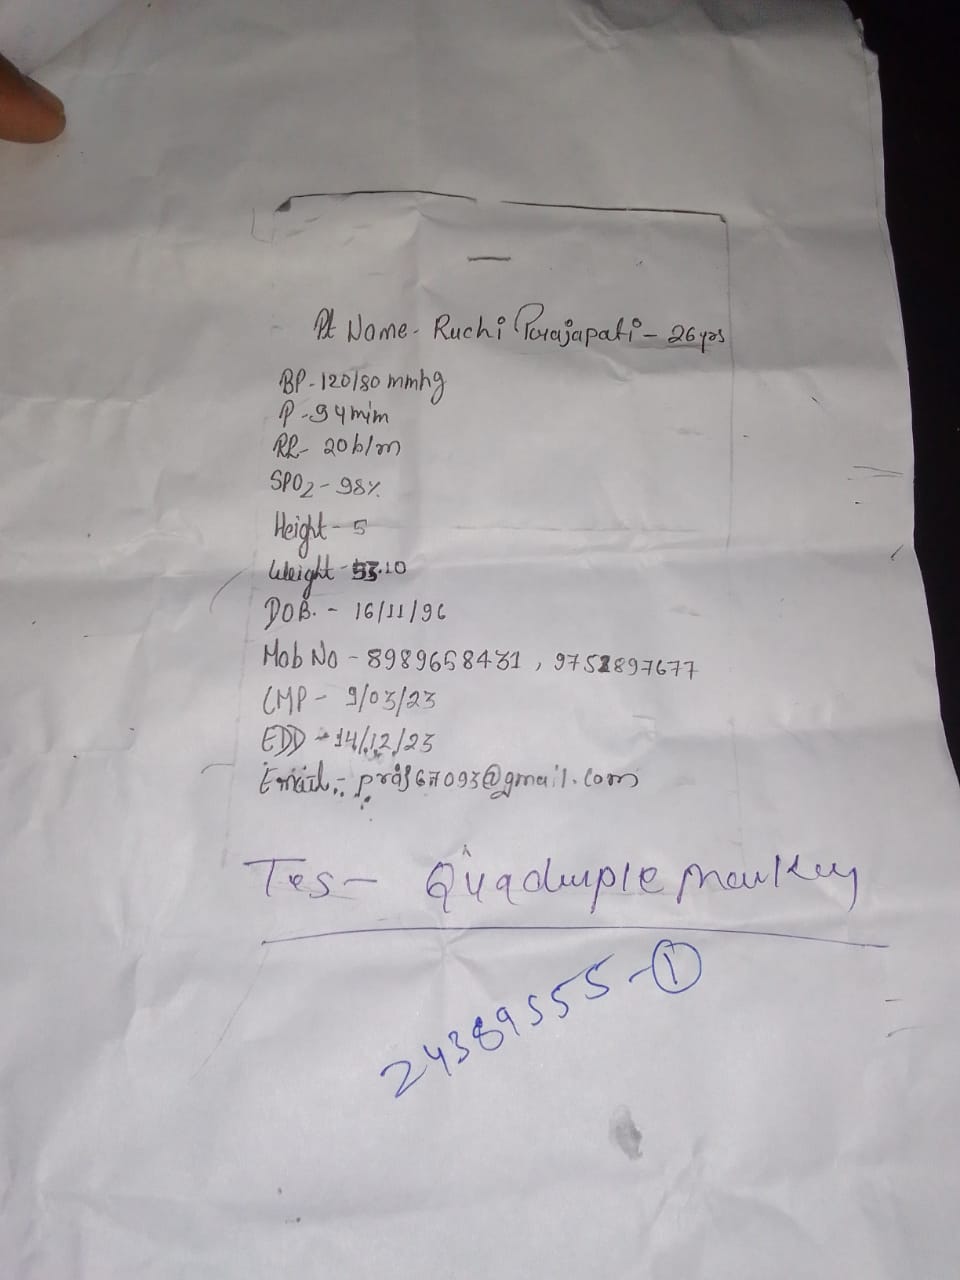 Pt Name - Ruchi Parajapati - 26 yrs
BP - 120/80 mmhg
P - 94 mim
RR - 20 b/m
SPO2 - 98%
Height - 5
Weight - 53.10
DOB. - 16/11/96
Mob No - 8989658431 , 9752897677
LMP - 9/03/23
EDD - 14/12/23
Email :- praj67093@gmail.com
Tes - Quaduple Markey
24389555 - 1